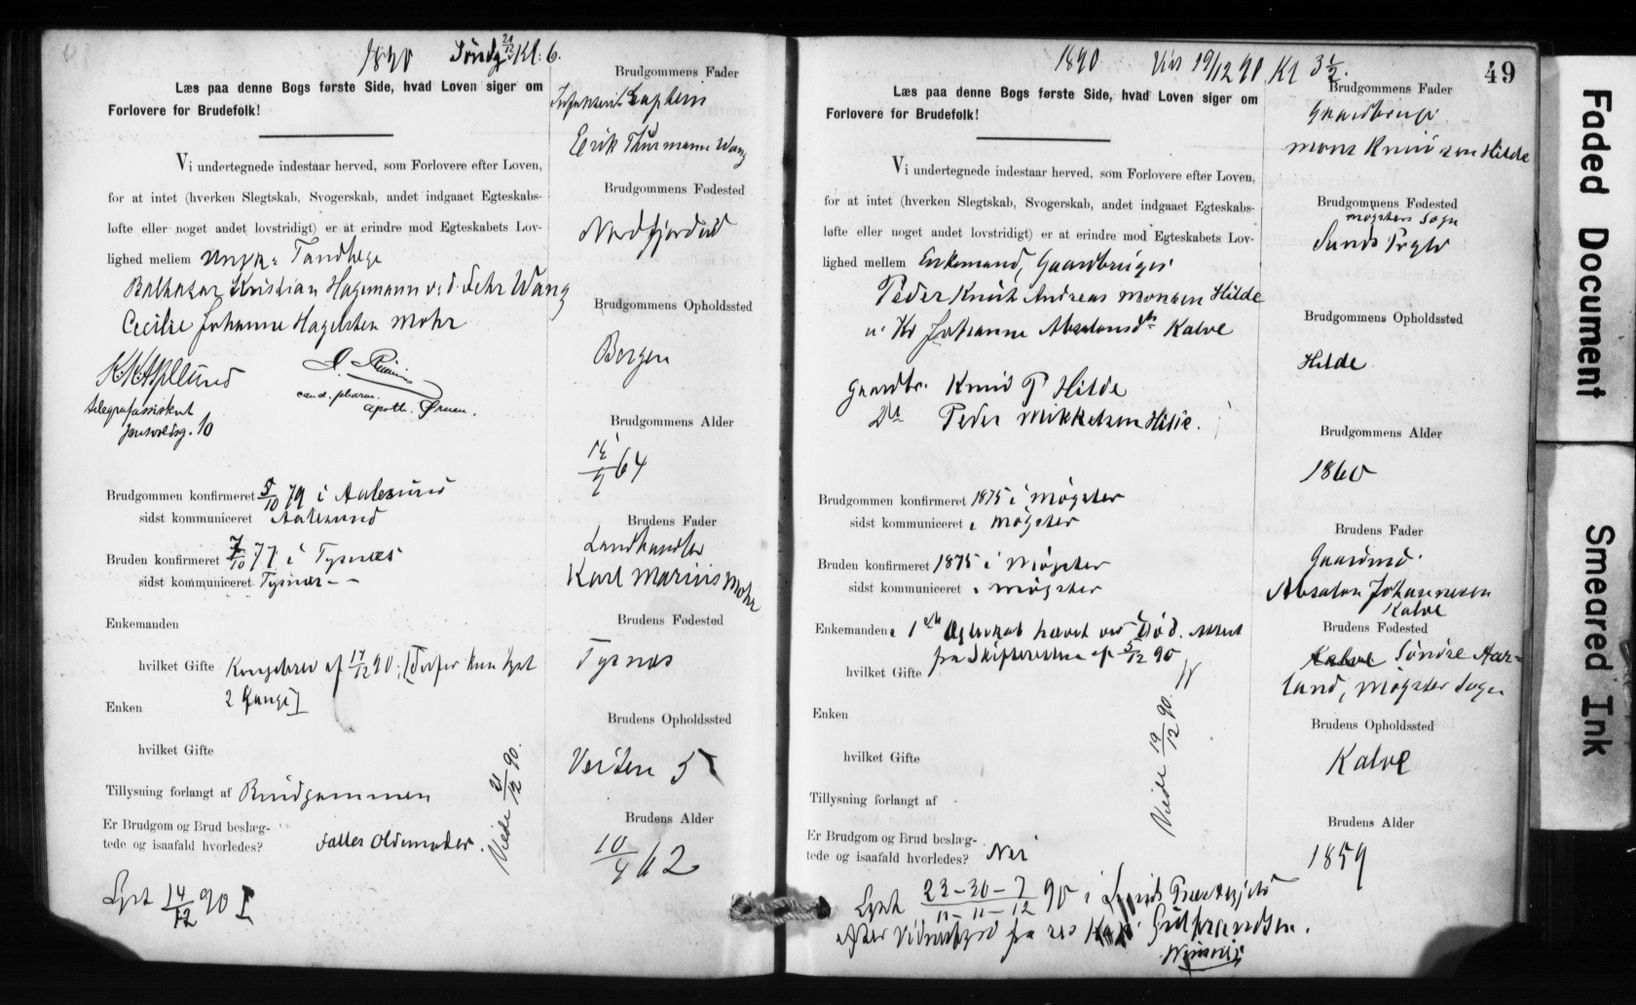 1890 Søndg 21/12 Kl: 6.
Læs paa denne Bogs første Side, hvad Loven siger om
Forlovere for Brudefolk!
Vi undertegnede indestaar herved, som Forlovere efter Loven,
for at intet (hverken Slegtskab, Svogerskab, andet indgaaet Egteskabs-
løfte eller noget andet lovstridigt) er at erindre mod Egteskabets Lov-
lighed mellem Ungk. Tandlæge
Balthazar Kristian Hagemann v. d. Fehr Wang
Cecilie Johanne Hagelsten Mohr
K.K. Asplund
telegrafassistent
10
cand. pharm.
apoth. Ørnen.
Brudgommen konfirmeret 5/10 79 i Aalesund
sidst kommuniceret Aalesund
Bruden konfirmeret 7/10 77 i Tysnæs
sidst kommuniceret Tysnæs - -
Enkemanden
hvilket Gifte Kongebrev af 17/12 90; [Derfor kun lyst
2 Gange]
Enken
hvilket Gifte
Tillysning forlangt af Brudgommen
Er Brudgom og Brud beslæg-
tede og isaafald hvorledes? Fælles Oldemoder.
Viede 21/12 90.
Lyst 14/12 90 I
Brudgommens Fader
Infanteri Kaptein
Erik Thurmann Wang
Brudgommens Fødested
Nordfjordeid
Brudgommens Opholdssted
Bergen
Brudgommens Alder
64
Brudens Fader
Landhandler
Karl Marius Mohr
Brudens Fødested
Tysnæs
Brudens Opholdssted
Veiten 5
Brudens Alder
10/4 62
1890 Vies 19/12 90 Kl 3 1/2.
49
Læs paa denne Bogs første Side, hvad Loven siger om
Forlovere for Brudefolk!
Vi undertegnede indestaar herved, som Forlovere efter Loven,
for at intet (hverken Slegtskab, Svogerskab, andet indgaaet Egteskabs-
løfte eller noget andet lovstridigt) er at erindre mod Egteskabets Lov-
lighed mellem Enkemand, Gaardbruger
Peder Knut Andreas Monsen Hilde
Johanne Absalonsdtr Kalve
Gaardbr. Knud P Hilde
Do Peder Mikkelsen Hilde.
Brudgommen konfirmeret 1875 i Møgster
sidst kommuniceret i Møgster
Bruden konfirmeret 1875 i Møgster
sidst kommuniceret i Møgster
Enkemanden 1ste Egteskab hævet ved Død. Attest
fra Skifteretten af 5/12 90
hvilket Gifte
Enken
hvilket Gifte
Tillysning forlangt af
Er Brudgom og Brud beslæg-
tede og isaafald hvorledes? Nei
Viede 19/12 90.
Lyst 23-30-7/11-11-12 90 i Sunds Præstegjeld
efter Vidnesbyrd fra res Kap. Gulbrandsen.
Brudgommens Fader
Gaardbruger
Mons Knudsen Hilde
Brudgommens Fødested
Møgster Sogn
Sunds Prgld
Brudgommens Opholdssted
Hilde
Brudgommens Alder
1860
Brudens Fader
Gaardmd.
Absalon Johannesen
Kalve
Brudens Fødested
Kalve Søndre Aar-
land, Møgster Sogn
Brudens Opholdssted
Kalve
Brudens Alder
1859
Faded Document
Smeared Ink